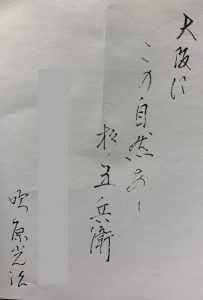 大阪に
この自然あり
松五兵衛
吹原光治